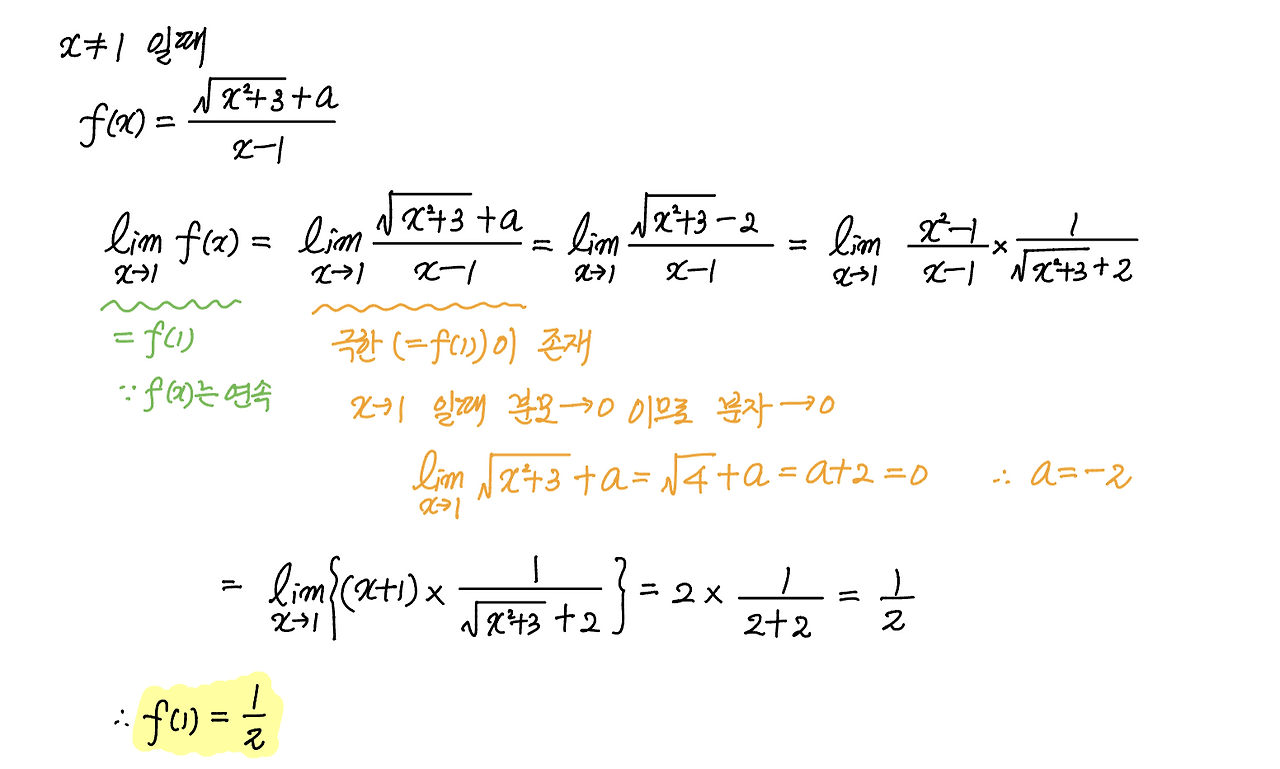 x≠1 일때
f(x) = (√(x²+3) + a)/(x-1)
lim_{x→1} f(x) = lim_{x→1} (√(x²+3) + a)/(x-1) = lim_{x→1} (√(x²+3) - 2)/(x-1) = lim_{x→1} (x²-1)/(x-1) × 1/(√(x²+3) + 2)
= f(1)
∵ f(x)는 연속
극한 (=f(1))이 존재
x→1 일때 분모→0 이므로 분자→0
lim_{x→1} √(x²+3) + a = √4 + a = a+2 = 0 ∴ a = -2
= lim_{x→1} {(x+1) × 1/(√(x²+3) + 2)} = 2 × 1/(2+2) = 1/2
∴ f(1) = 1/2